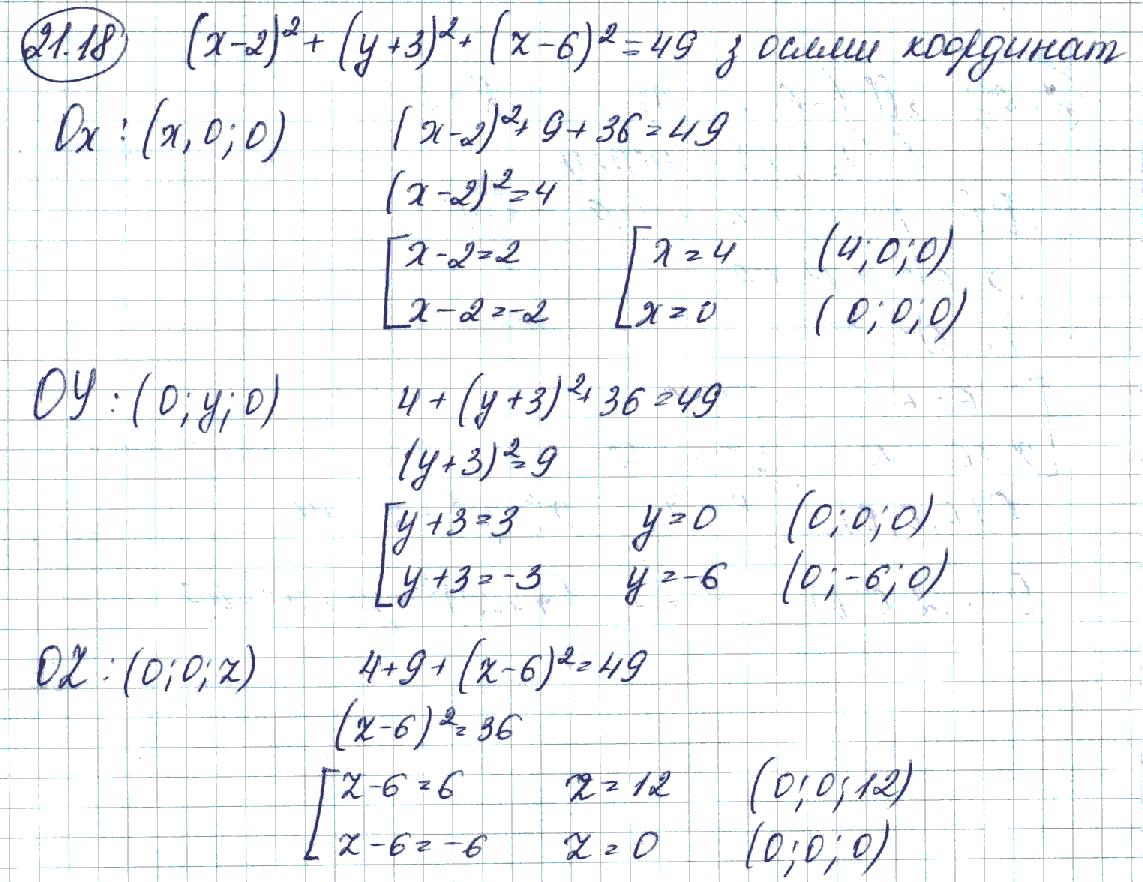 21.18 (x-2)²+(y+3)²+(z-6)²=49 з осями координат
Ox: (x,0;0) (x-2)²+9+36=49
(x-2)²=4
[x-2=2 [x=4 (4;0;0)
x-2=-2 x=0 (0;0;0)
OY: (0;y;0) 4+(y+3)²+36=49
(y+3)²=9
[y+3=3 y=0 (0;0;0)
y+3=-3 y=-6 (0;-6;0)
OZ: (0;0;z) 4+9+(z-6)²=49
(z-6)²=36
[z-6=6 z=12 (0;0;12)
z-6=-6 z=0 (0;0;0)